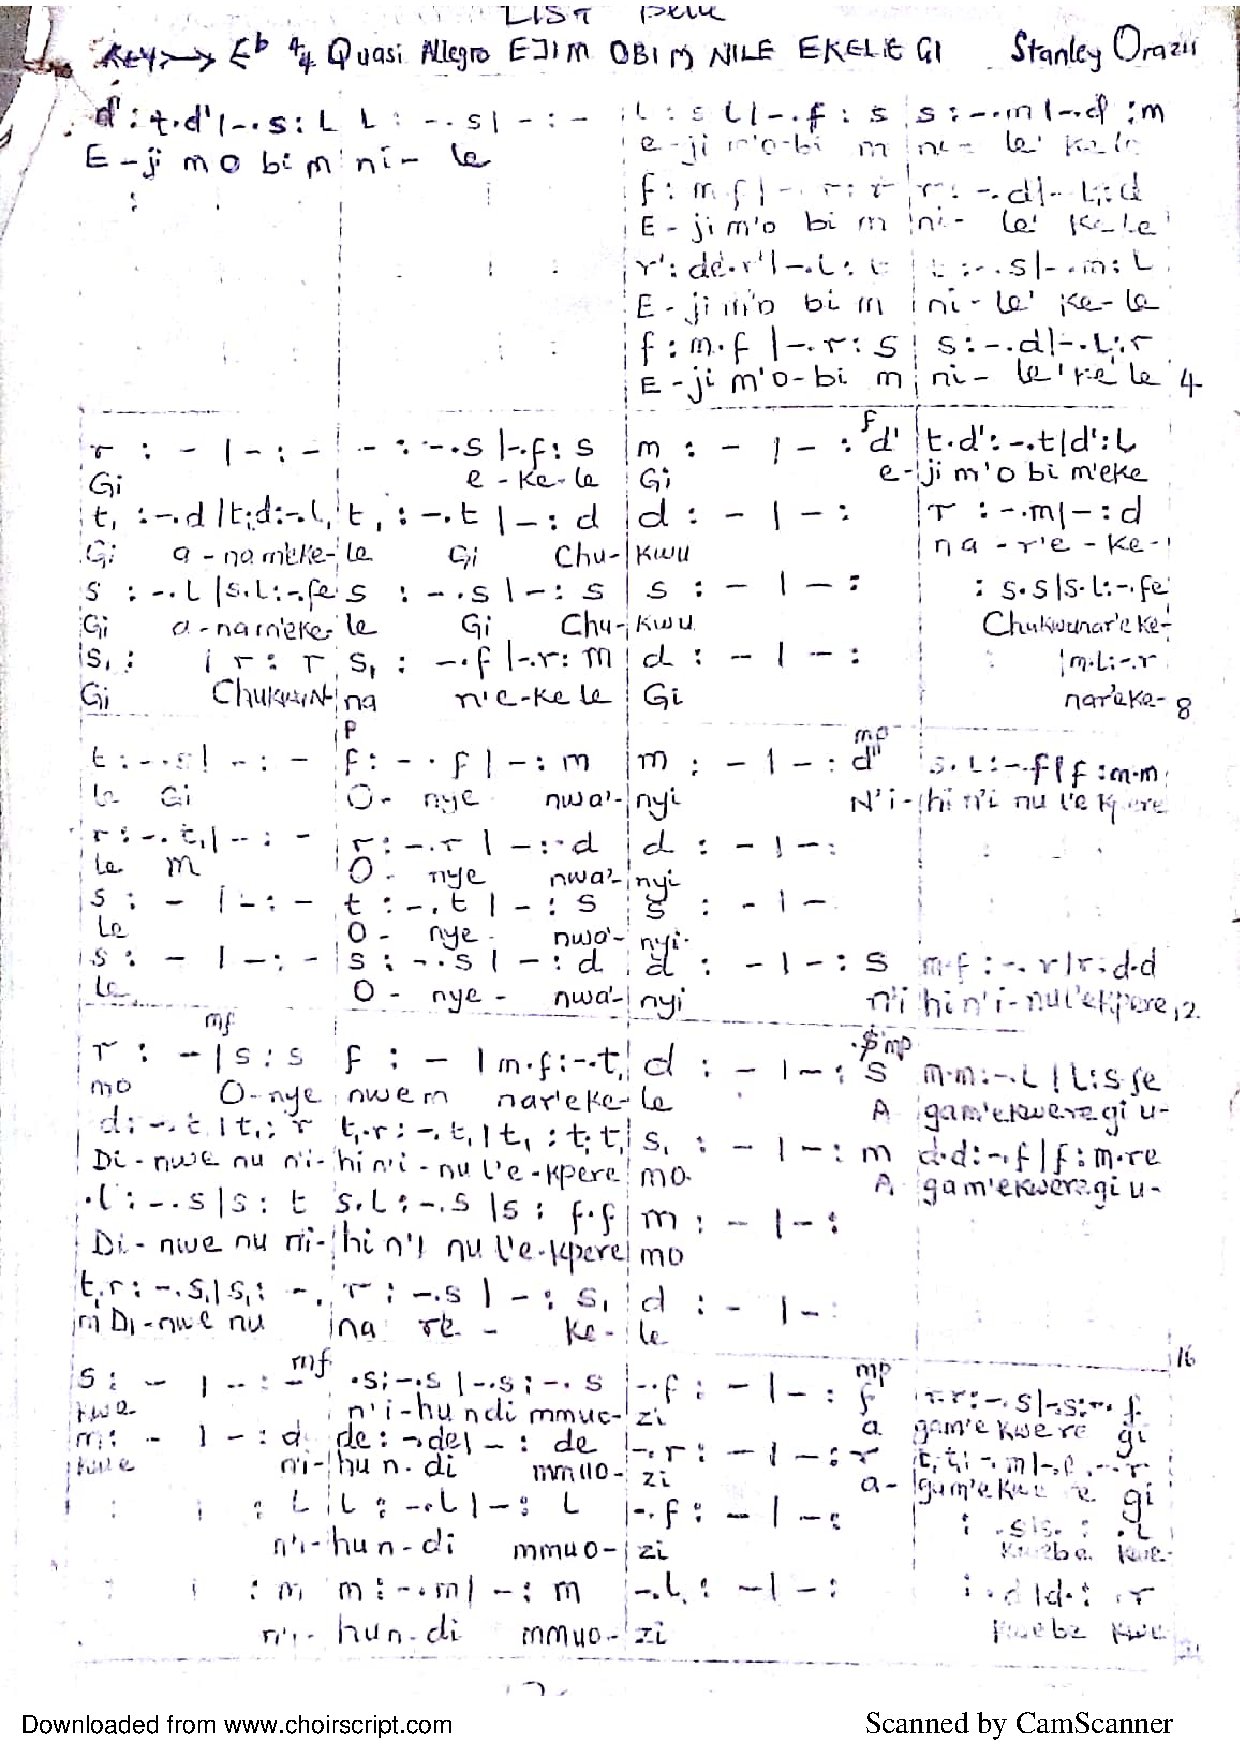 Key → Eb 4/4 Quasi Allegro EJIM OBIM NILE EKELE GI Stanley Orazii
d' : t.d' | -.s : L L : -.s | - : - L : s L | -.f : s s : -.m | -.d : m
E - ji m o bi m ni - le e - ji m'o-bi m ni - le' ke le
f : m.f | - . r : r r : -.d | -. L, : d
E - ji m'o bi m ni - le' ke le
r' : de'.r' | -.L : t t : -.s | -.m : L
E - ji m'o bi m ni - le' ke - le
f : m.f | -.r : s s : -.d | -.L, : r
E - ji m'o-bi m ni - le' ke le 4
f
r : - | - : - - : -.s | -.f : s m : - | - : d' t.d' : -.t | d' : L
Gi e - ke - le Gi e - ji m'o bi m'eke
t, : -.d | t,.d : -.L, t, : -.t | - : d d : - | - : r : -.m | - : d
Gi a - na m'eke - le Gi Chu - kwu na - r'e - ke -
s : -.L | s.L : -.fe s : -.s | - : s s : - | - : : s.s | s.L : -.fe
Gi a - na m'eke - le Gi Chu - kwu Chukwu nar'eke -
s, : | r : r s, : -.f | -.r : m d : - | - : : | m.L : -.r
Gi na n'e - ke le Gi nar'eke - 8
p mp
t : -.s | - : - f : -.f | - : m m : - | - : d'' s.L : -.f | f : m.m
le Gi O - nye nwa' - nyi N'i - hi n'i nu l'e kpere
r : -.t, | - : - r : -.r | - : d d : - | - :
le m O - nye nwa' - nyi
s : - | - : - t : -.t | - : s s : - | -
le O - nye nwa' - nyi
s : - | - : - s : -.s | - : d d : - | - : s m.f : -.r | r : d.d
le O - nye - nwa' - nyi n'i hi n'i - nu l'ekpere 12
mf mp
r : - | s : s f : - | m.f : -.t, d : - | - : s m.m : -.L | L : s.fe
mo O - nye nwem nar'eke - le A gam'ekwere gi u -
d : -.t | t, : r t,.r : -.t, | t, : t,.t, s, : - | - : m d.d : -.f | f : m.re
Di - nwe nu n'i - hi n'i - nu l'e - kpere mo A gam'ekwere gi u -
.L : -.s | s : t s.L : -.s | s : f.f m : - | - :
Di - nwe nu n'i - hi n'i nu l'e - kpere mo
t,.r : -.s, | s, : -. r : -.s | - : s, d : - | - :
Di - nwe nu na re - ke - le
16
mf mp
s : - | - : - .s : -.s | -.s : -.s -.f : - | - : f r.r : -.s | -.s : -. f
kwe n'i - hu n di mmuo - zi a gam'e kwere gi
m : - | - : d de : -.de | - : de -.r : - | - : r
kwe n'i - hu n - di mmuo - zi a - gam'e kwe re gi
: L L : -.L | - : L -.f : - | - :
n'i - hu n - di mmuo - zi kwe
: m m : -.m | - : m -.L, : - | - : : .d | d. : .r
n'i - hu n - di mmuo - zi kwe
Downloaded from www.choirscript.com
Scanned by CamScanner